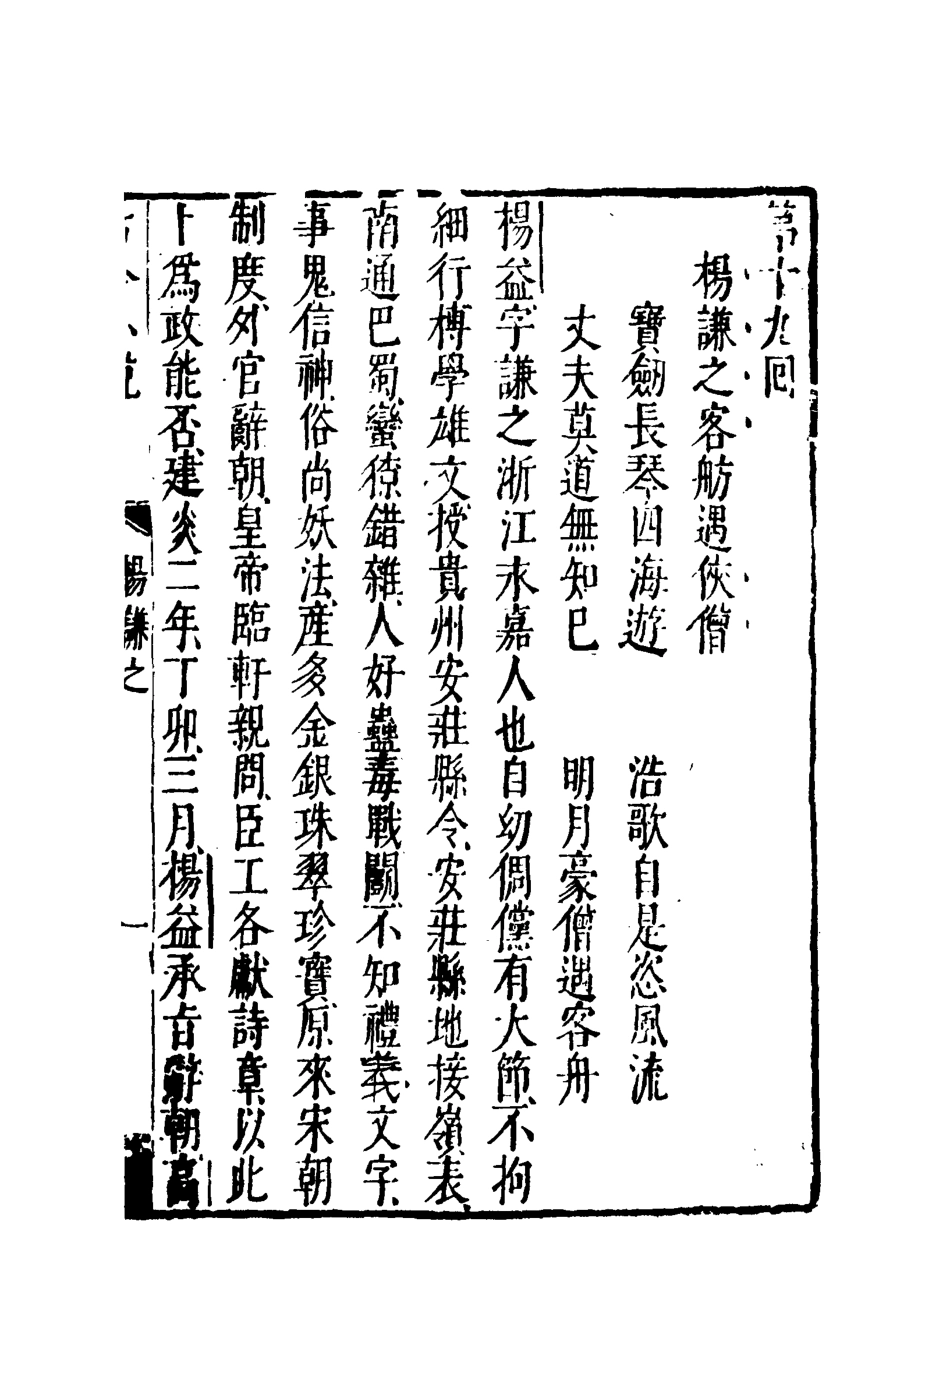 第十九回
楊謙之客舫遇俠僧
寶劒長琴四海遊　浩歌自是恣風流
丈夫莫道無知已　明月豪僧遇客舟
楊益字謙之浙江永嘉人也自幼倜儻有大節不拘
細行博學雄文授貴州安莊縣令安莊縣地接嶺表
南通巴蜀蠻獠錯雜人好蠱毒戰鬬不知禮義文字
事鬼信神俗尚妖法產多金銀珠翠珍寶原來宋朝
制度外官辭朝皇帝臨軒親問臣工各獻詩章以此
卜為政能否建炎二年丁卯三月楊益承旨辭朝高
楊謙之
一